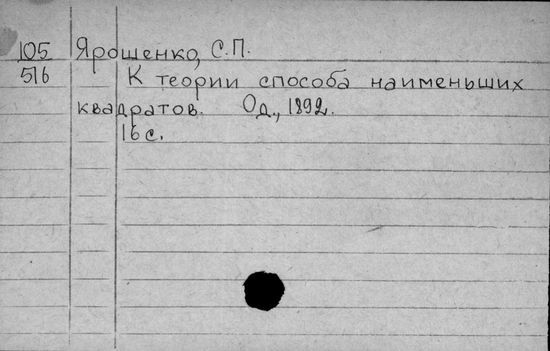 105 Ярошенко, С.П.
516 К теории способа наименьших
квадратов. Од., 1892.
16 с.